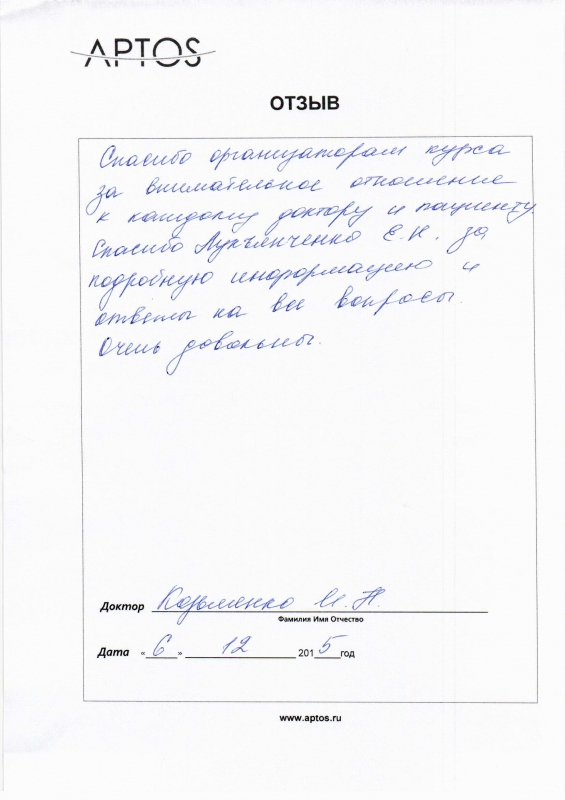 APTOS
ОТЗЫВ
Спасибо организаторам курса
за внимательное отношение
к каждому доктору и пациенту.
Спасибо Лукьянченко Е.Н. за
подробную информацию и
ответы на все вопросы.
Очень довольны.
Доктор Козьменко И.Н.
Фамилия Имя Отчество
Дата «6» 12 2015год
www.aptos.ru